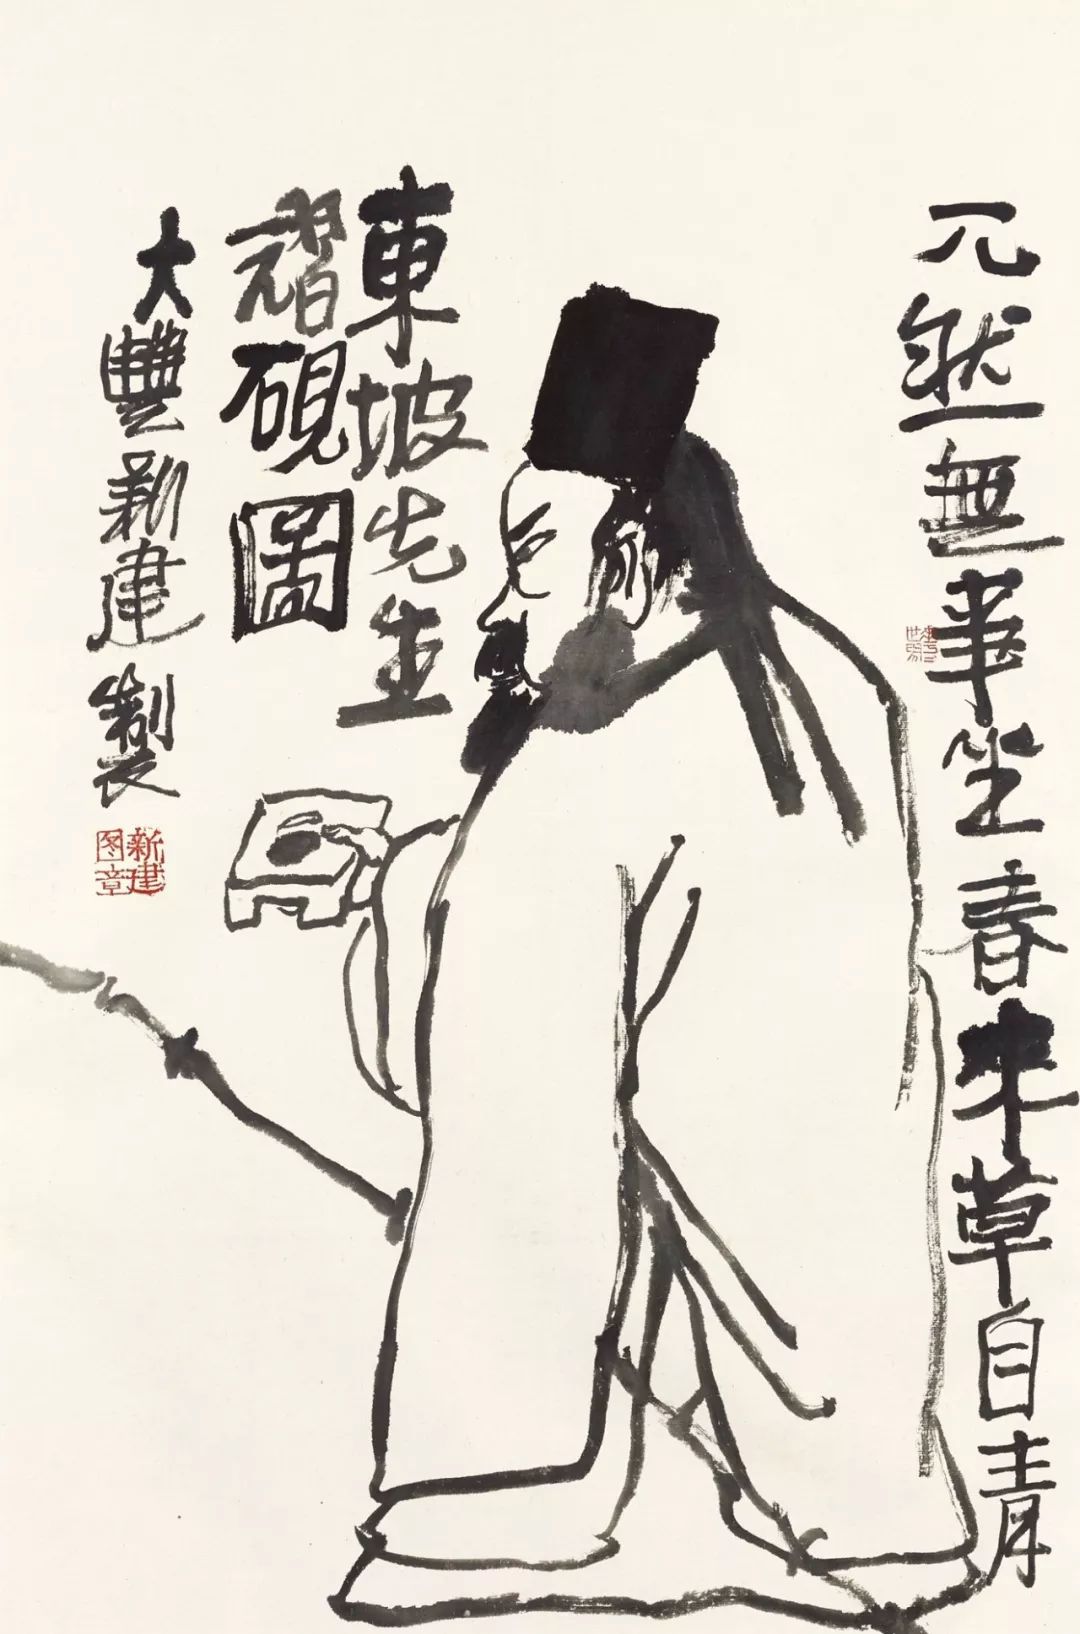 兀然無事坐春來草自青
東坡先生
翫硯圖
大豐新建製
新建
图章